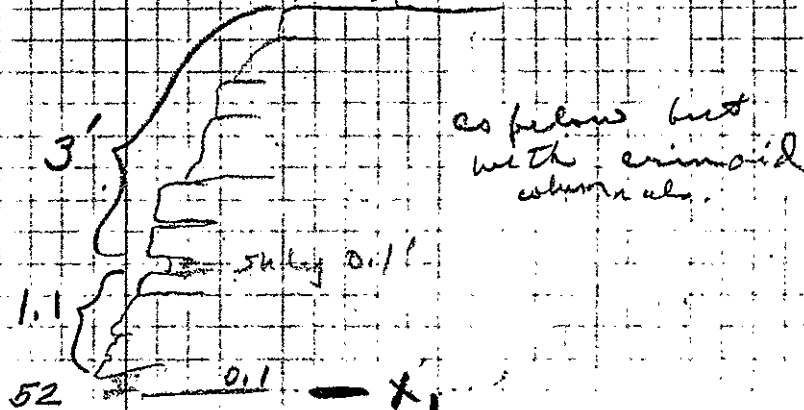 3'
as below but
with crinoid
columnals.
shly 0.1'
1.1
52 0.1 X,